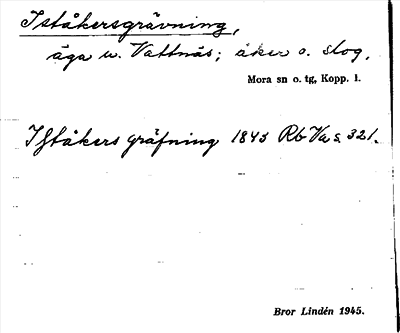 Iståkersgrävning,
äga u. Vattnäs; åker o. slog.
Mora sn o. tg, Kopp. l.
Iståkers gräfning 1843 Rb Va s. 321.
Bror Lindén 1945.